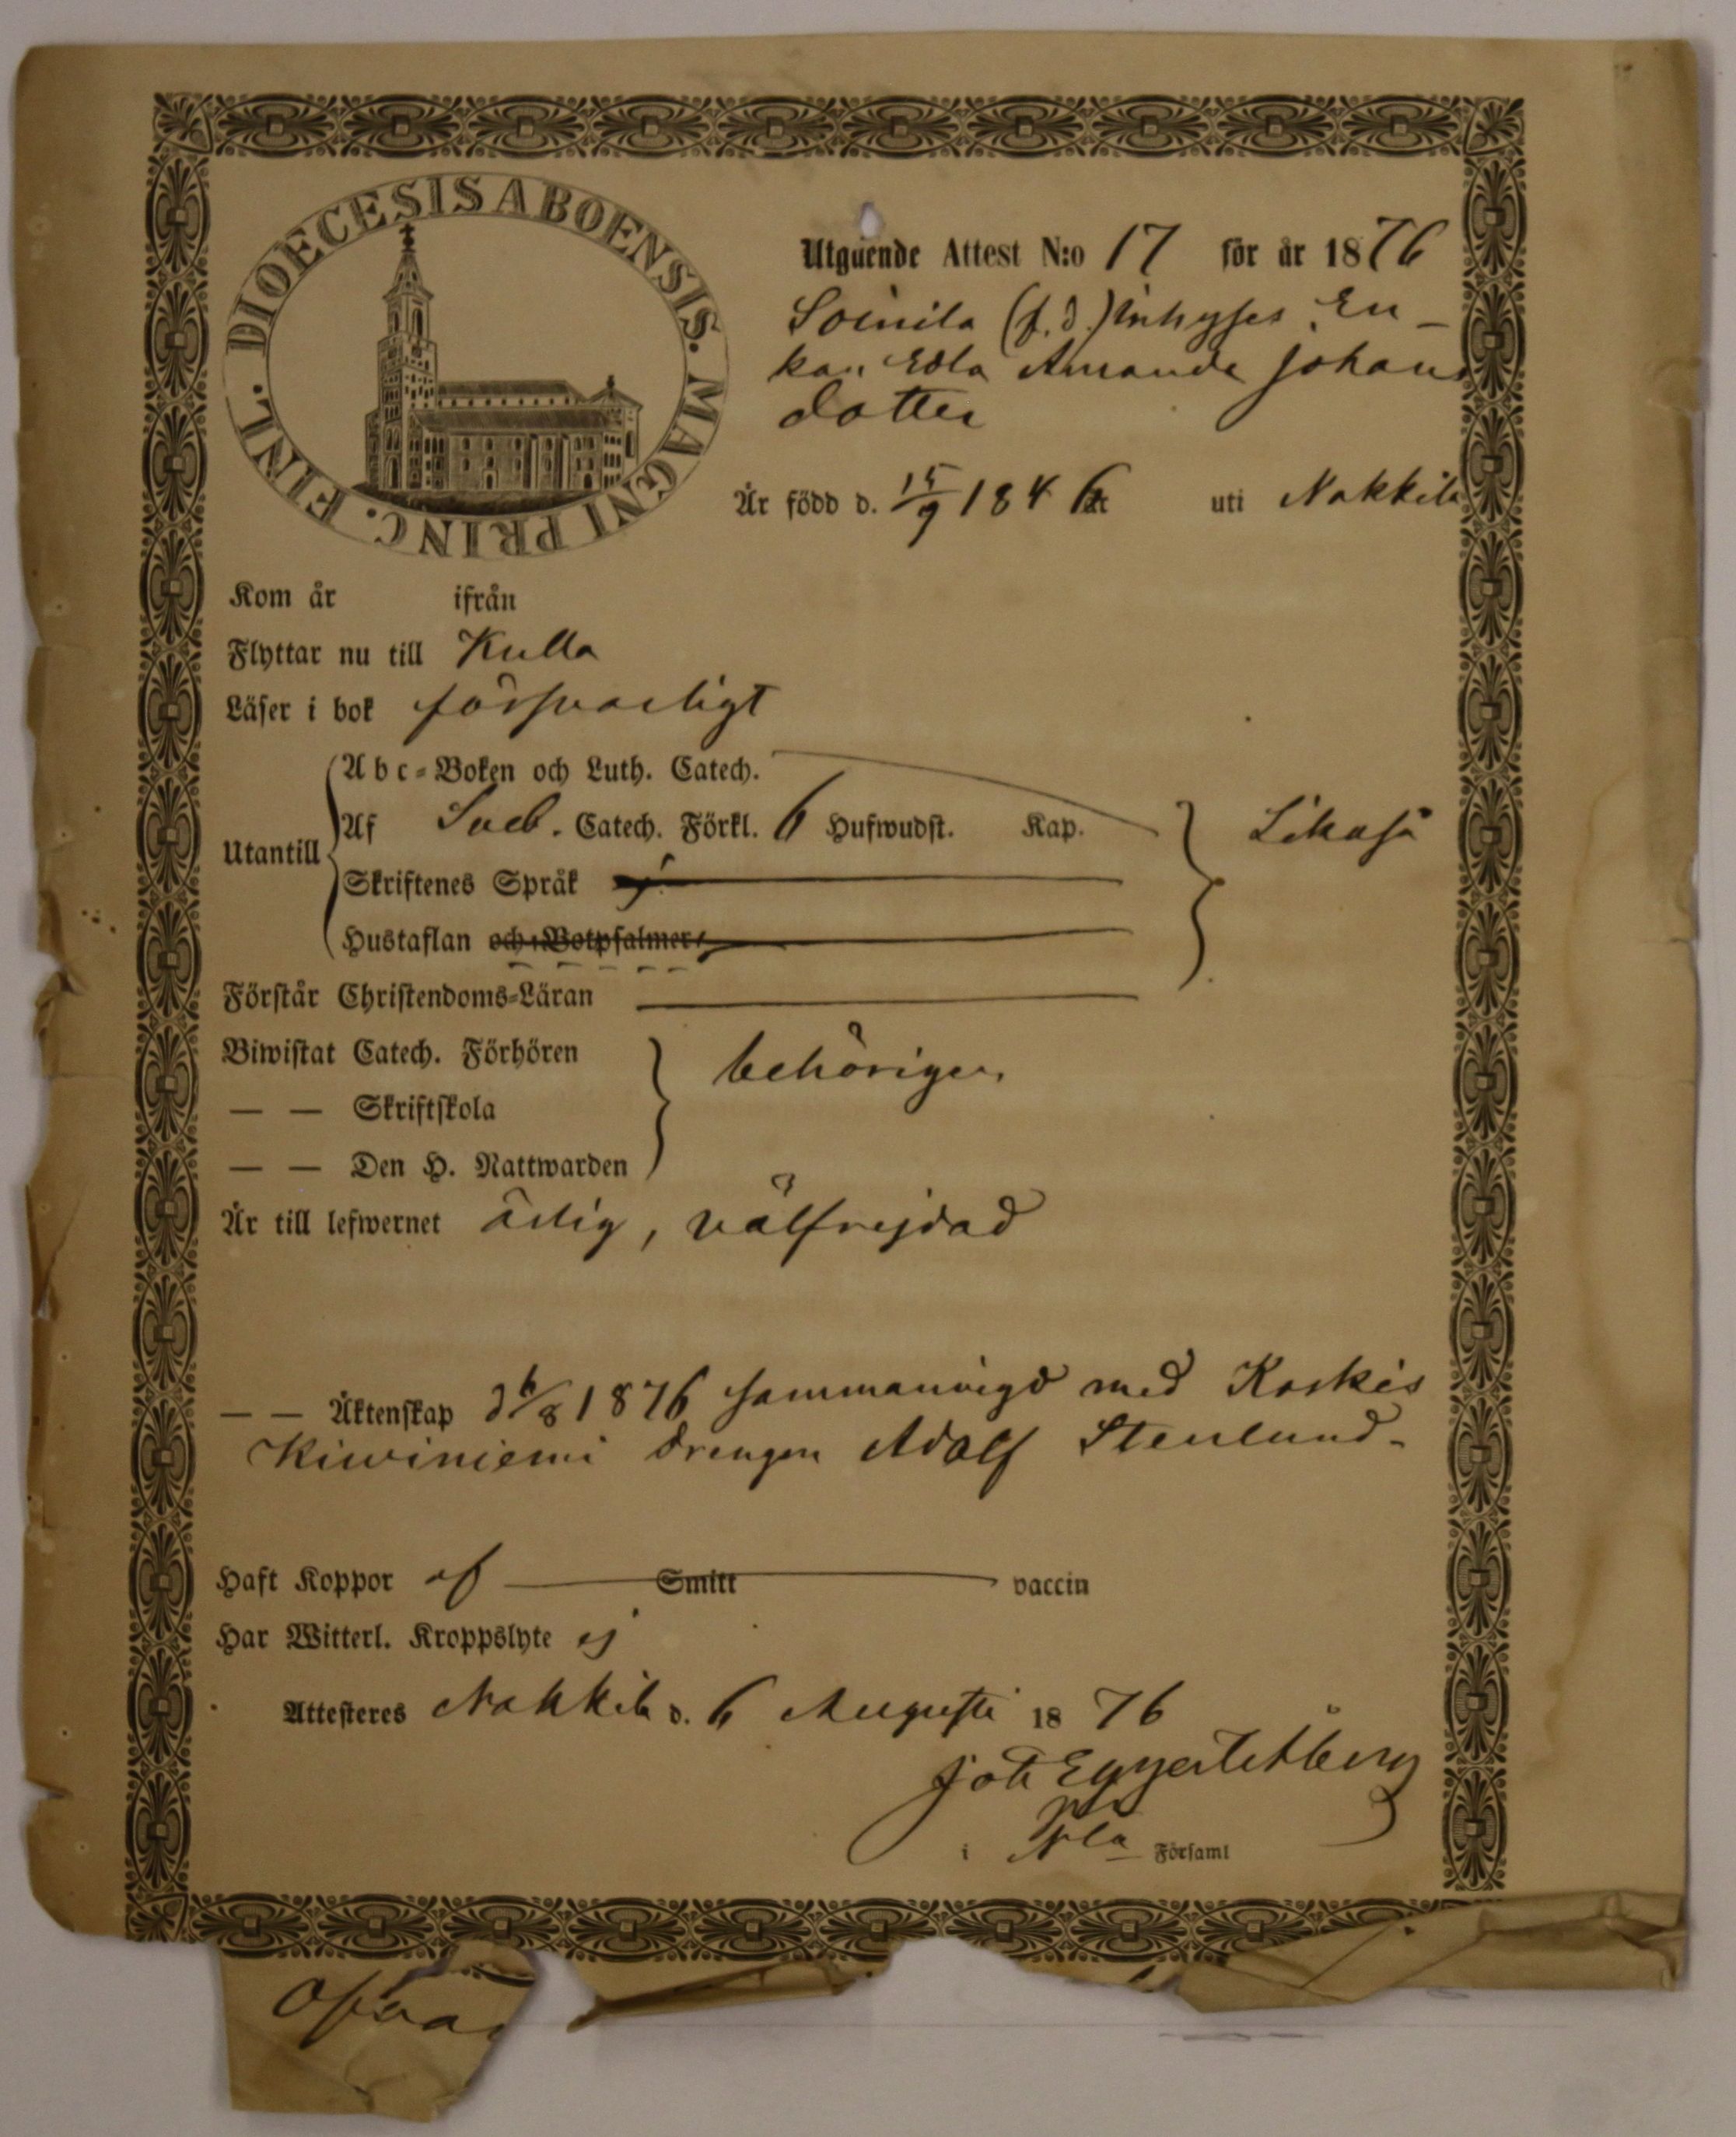 DIOECESIS ABOENSIS. MAGNI PRINC. FINL.
Utgående Attest N:o 17 för år 1876
Soinila (f.d.) inhyses En-
kan Edla Amanda Johans
dotter
Är född d. 15/9 1846 uti Nakkila
Kom år ifrån
Flyttar nu till Kulla
Läser i bok försvarligt
Abc-Boken och Luth. Catech.
Utantill Af Sveb. Catech. Förkl. 6 Hufwudst. Kap. Likaså
Skriftenes Språk
Hustaflan och Botpsalmer
Förstår Christendoms-Läran
Biwistat Catech. Förhören behörigen
— — Skriftskola
— — Den H. Nattwarden
Är till lefwernet ärlig, välfrejdad
— — Äktenskap d 6/8 1876 sammanvigd med Koskis
Kiwiniemi drengen Adolf Stenlund.
Haft Koppor af Smitt vaccin
Har Witterl. Kroppslyte ej
Attesteres Nakkila d. 6 Augusti 1876
Joh
i Nla Församl